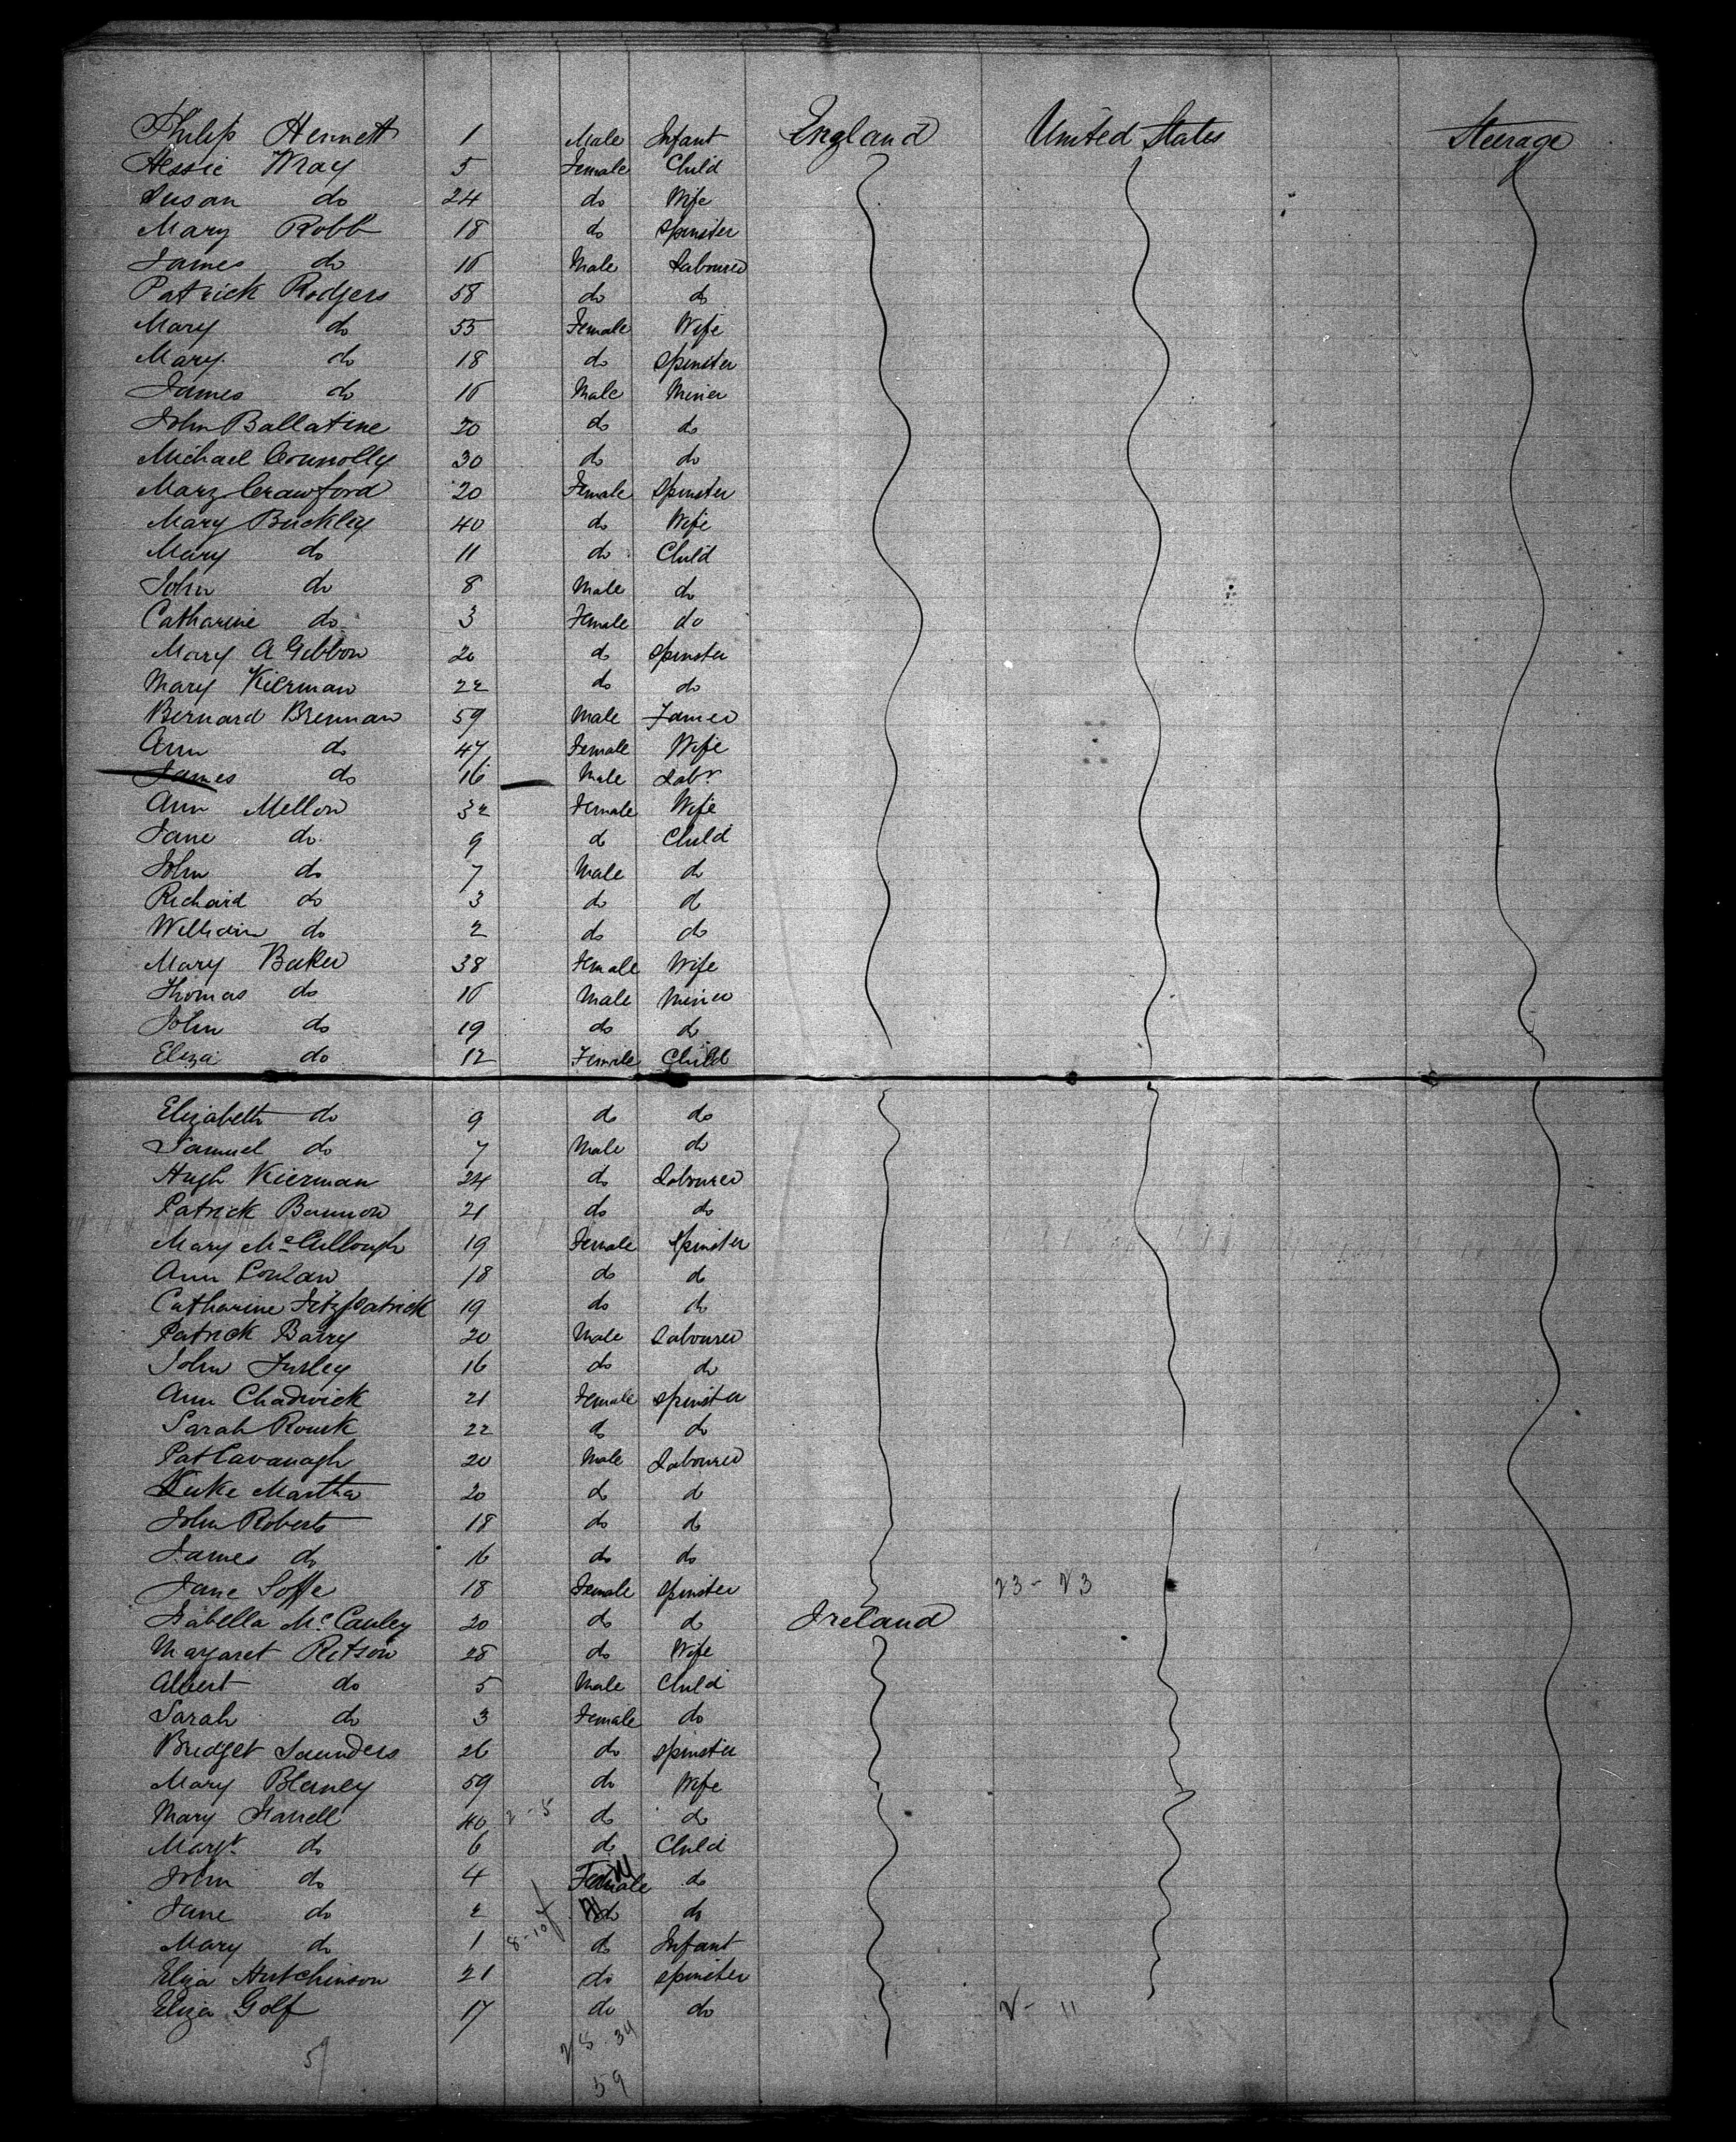 Philip Hennett 1 Male Infant England United States Steerage
Hessie May 5 Female Child
Susan do 24 do Wife
Mary Robb 18 do Spinster
James do 16 Male Labourer
Patrick Rodgers 58 do do
Mary do 55 Female Wife
Mary do 18 do Spinster
James do 16 Male Miner
John Ballatine 20 do do
Michael Connolly 30 do do
Mary Crawford 20 Female Spinster
Mary Buckley 40 do Wife
Mary do 11 do Child
John do 8 Male do
Catharine do 3 Female do
Mary A Gibbon 20 do Spinster
Mary Kierman 22 do do
Bernard Brennan 59 Male Farmer
Ann do 47 Female Wife
James do 16 Male Labr
Ann Mellon 32 Female Wife
Jane do 9 do Child
John do 7 Male do
Richard do 3 do do
William do 2 do do
Mary Baker 38 Female Wife
Thomas do 16 Male Miner
John do 19 do do
Eliza do 12 Female Child
Elizabeth do 9 do do
Samuel do 7 Male do
Hugh Kierman 24 do Labourer
Patrick Bannon 21 do do
Mary McCullough 19 Female Spinster
Ann 18 do do
Catharine Fitzpatrick 19 do do
Patrick Barry 20 Male Labourer
John Furley 16 do do
Ann Chadwick 21 Female Spinster
Sarah Rourk 22 do do
Pat Cavanagh 20 Male Labourer
Luke Martha 20 do do
John Roberts 18 do do
James do 16 do do
Jane Soffe 18 Female Spinster 23 - 23
Isabella McCauley 20 do do Ireland
Margaret Ritson 28 do Wife
Albert do 5 Male Child
Sarah do 3 Female do
Bridget Saunders 26 do Spinster
Mary Blaney 59 do Wife
Mary Farrell 40 2 - 5 do do
Margt do 6 do Child
John do 4 Female M do
Jane do 2 do do
Mary do 1 8-10 do Infant
Eliza Hutchinson 21 do Spinster
Eliza Golf 17 do do 2 - 11
59 25 . 34
59